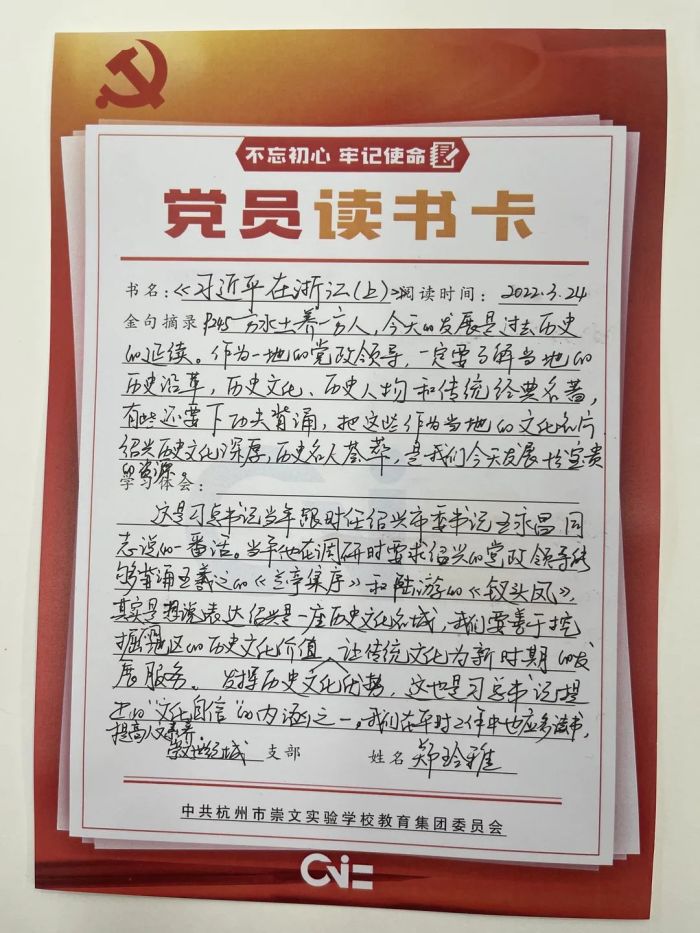 不忘初心 牢记使命
党员读书卡
书名:《习近平在浙江(上)》阅读时间: 2022.3.24
金句摘录 P245 一方水土养一方人,今天的发展是过去历史
的延续。作为一地的党政领导,一定要了解当地的
历史沿革,历史文化、历史人物和传统经典名著,
有些还要下功夫背诵,把这些作为当地的文化名片
绍兴历史文化深厚,历史名人荟萃,是我们今天发展的宝贵
的资源。
学习体会:
这是习总书记当年跟时任绍兴市委书记王永昌同
志说的一番话。当年他在调研时要求绍兴的党政领导能
够背诵王羲之的《兰亭集序》和陆游的《钗头凤》,
其实是想说表达绍兴是一座历史文化名城,我们要善于挖
掘地区的历史文化价值,让传统文化为新时期的发
展服务。发挥历史文化优势,这也是习总书记提
出的“文化自信”的内涵之一。我们在平时工作中也应多读书,
提高人文素养。
支部 姓名 郑玲雅
中共杭州市崇文实验学校教育集团委员会